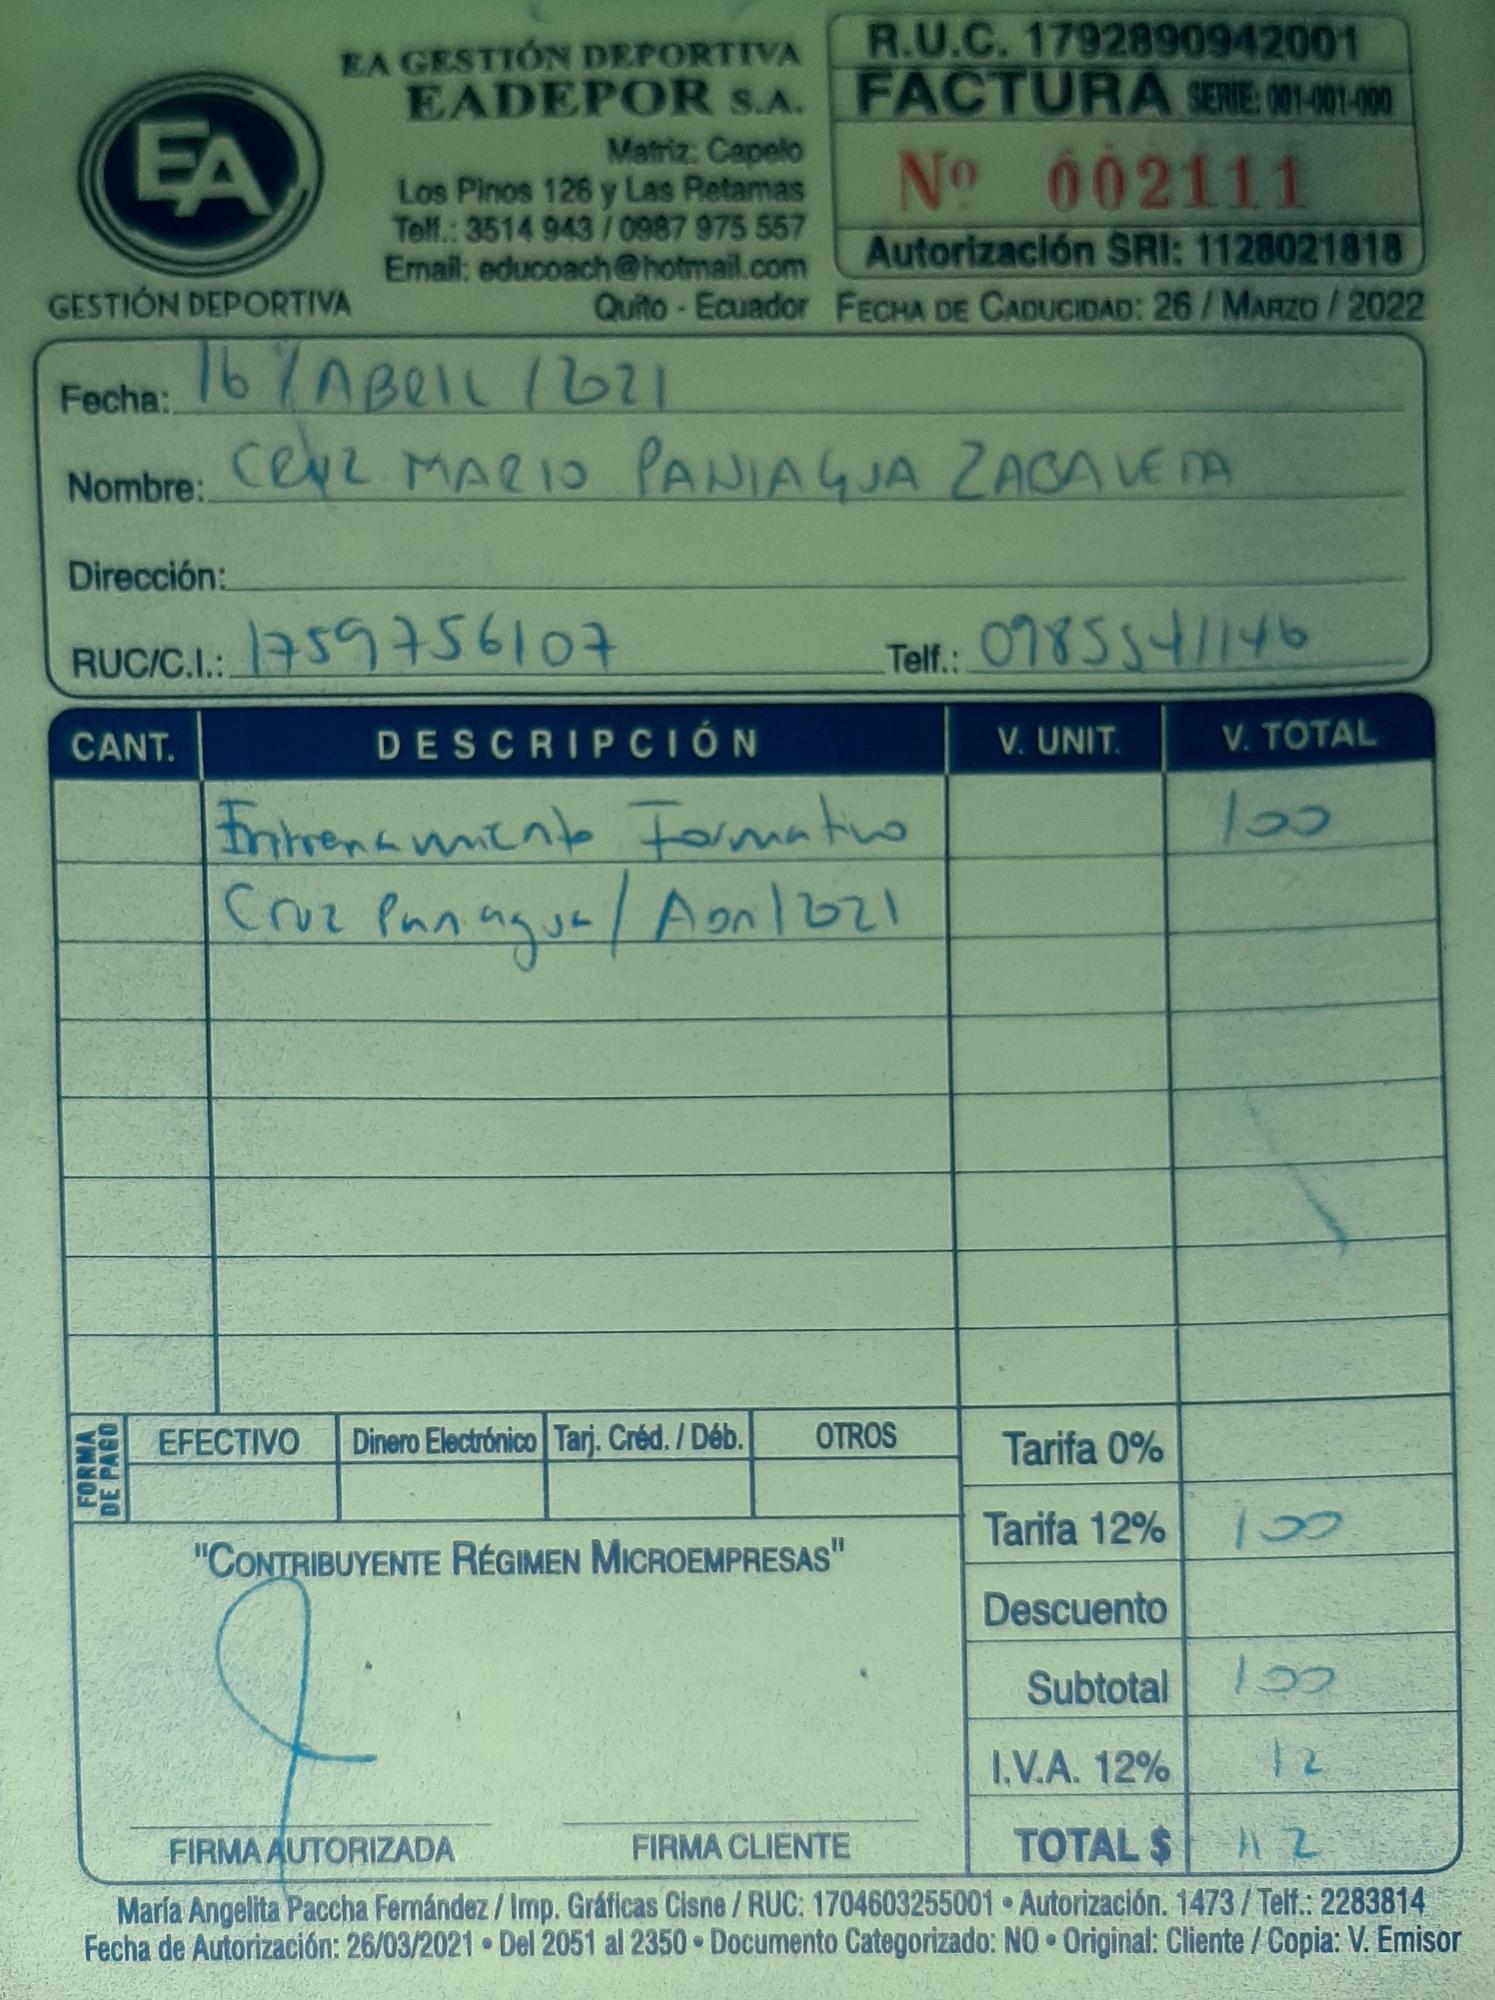 EA GESTIÓN DEPORTIVA
EADEPOR S.A.
Matriz: Capelo
Los Pinos 126 y Las Retamas
Telf.: 3514 943 / 0987 975 557
Email: educoach@hotmail.com
Quito - Ecuador
EA
GESTIÓN DEPORTIVA
R.U.C. 1792890942001
FACTURA SERIE: 001-001-000
Nº 002111
Autorización SRI: 1128021818
FECHA DE CADUCIDAD: 26 / MARZO / 2022
Fecha: 16 / ABRIL / 2021
Nombre: CRUZ MARIO PANIAGUA
Dirección:
RUC/C.I.: 1759756107 Telf.: 0985541146
CANT. DESCRIPCIÓN V. UNIT. V. TOTAL
Entrenamiento Formativo 100
Cruz Paniagua / Abril 2021
FORMA DE PAGO
EFECTIVO Dinero Electrónico Tarj. Créd. / Déb. OTROS
Tarifa 0%
Tarifa 12% 100
Descuento
Subtotal 100
I.V.A. 12% 12
TOTAL $ 112
"CONTRIBUYENTE RÉGIMEN MICROEMPRESAS"
FIRMA AUTORIZADA FIRMA CLIENTE
María Angelita Paccha Fernández / Imp. Gráficas Cisne / RUC: 1704603255001 • Autorización. 1473 / Telf.: 2283814
Fecha de Autorización: 26/03/2021 • Del 2051 al 2350 • Documento Categorizado: NO • Original: Cliente / Copia: V. Emisor